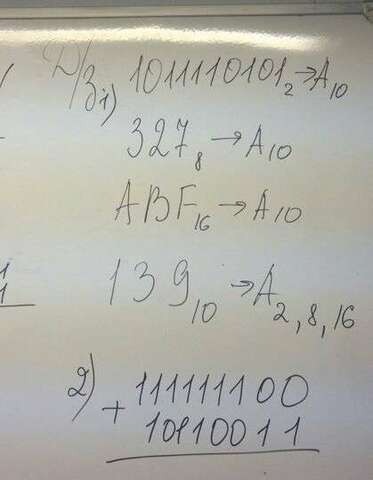 Д/З 1) 1011110101₂→A₁₀
327₈→A₁₀
ABF₁₆→A₁₀
139₁₀→A₂,₈,₁₆
2) + 111111100
10110011